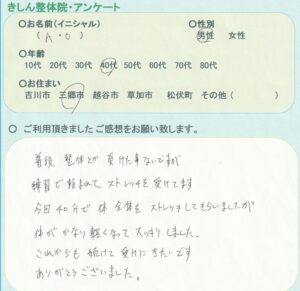 きしん整体院・アンケート
○お名前(イニシャル) ○性別
(A・O) 男性 女性
○年齢
10代 20代 30代 40代 50代 60代 70代 80代
○お住まい
吉川市 三郷市 越谷市 草加市 松伏町 その他( )
○ ご利用頂きました ご感想をお願い致します。
普段 整体とか 受けた事ないですが
練習で頼まれて ストレッチを受けてます
今回40分で 体 全体を ストレッチしてもらいましたが
体が かなり 軽くなって スッキリしました.
これからも 続けて 受けに きたいです
ありがとうございました。